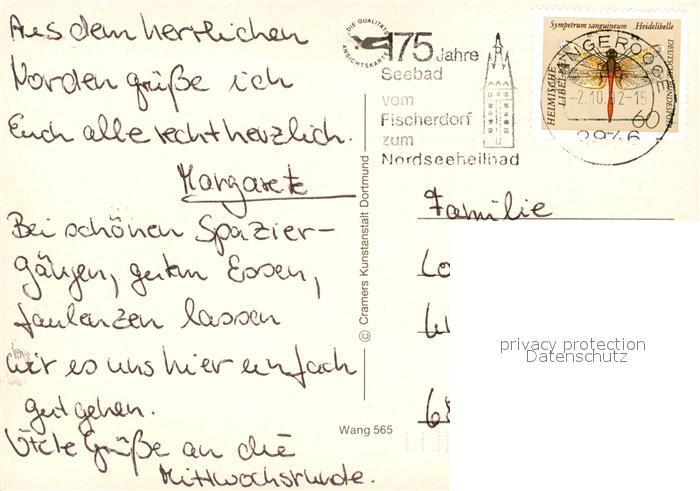 Aus dem herrlichen
Norden grüße ich
Euch alle recht herzlich.
Margarete
Bei schönen Spazier-
gängen, guten Essen,
faulenzen lassen
wir es uns hier einfach
gut gehen.
Grüße an die
Mittwochsrunde.
DIE QUALITÄTS
ANSICHTSKARTE
175 Jahre
Seebad
vom
Fischerdorf
zum
Nordseeheilbad
Sympetrum sanguineum Heidelibelle
HEIMISCHE
LIBELLEN
DEUTSCHE BUNDESPOST
60
WANGEROOGE
-2.10.92-15
2946
© Cramers Kunstanstalt Dortmund
Wang 565
Familie
privacy protection
Datenschutz